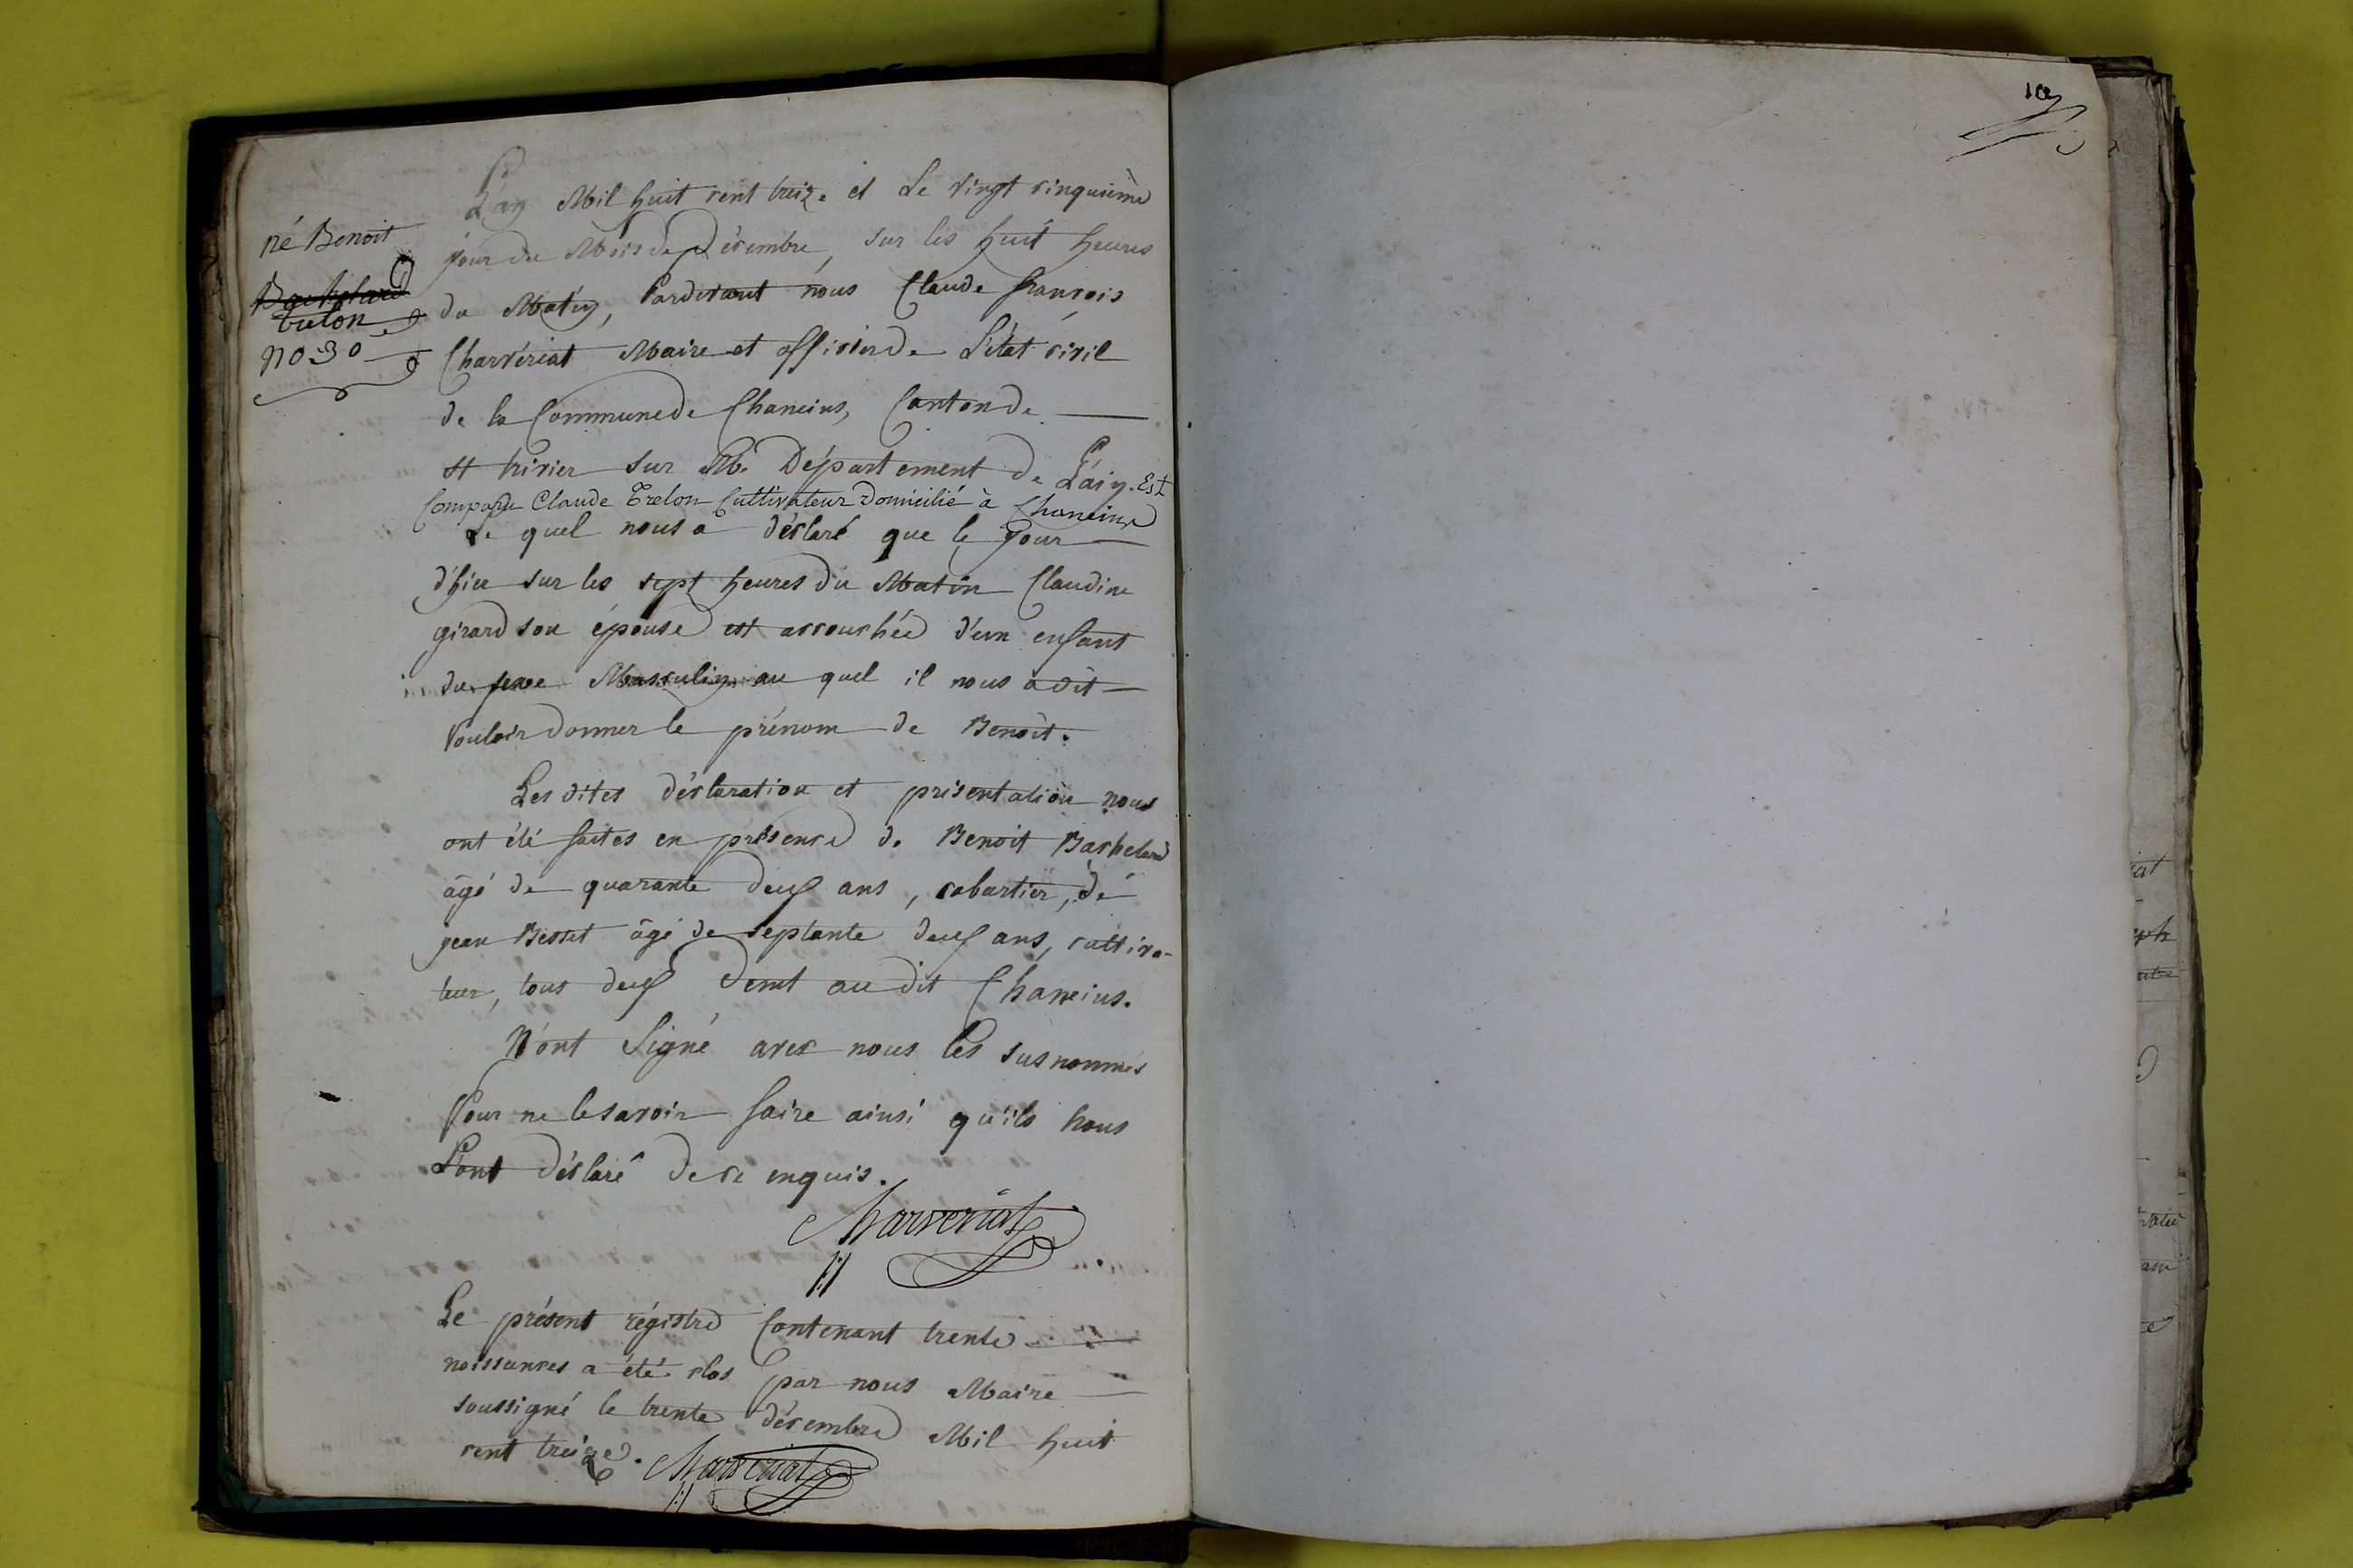 né Benoit
Bachelard
trelon
no 30
L'an Mil huit cent treize et Le vingt cinquième
jour du Mois de Décembre, sur les huit heures
du Matin, Pardevant nous Claude françois
Charvériat Maire et officier de L'état civil
de la Commune de Chaneins, Canton de
st trivier sur Mb. Département de L'ain. Est
Comparu Claude Trelon Cultivateur Domicilié à Chaneins
Le quel nous a déclaré que le jour
d'hier sur les sept heures du Matin Claudine
girard son épouse est accouchée d'un enfant
du sexe Masculin au quel il nous a dit
Vouloir donner le prénom de Benoit.
Les dites déclaration et présentation nous
ont été faites en présence de Benoit Bachelard
âgé de quarante deux ans, cabartier, de
jean Besset âgé de septante deux ans, cultiva-
teur, tous deux demt au dit Chaneins.
N'ont Signé avec nous les susnommés
Pour ne le savoir faire ainsi qu'ils nous
L'ont déclaré de ce enquis.
Charveriat
Le présent régistre Contenant trente
naissances a été clos par nous Maire
soussigné le trente décembre Mil huit
cent treize. Charveriat